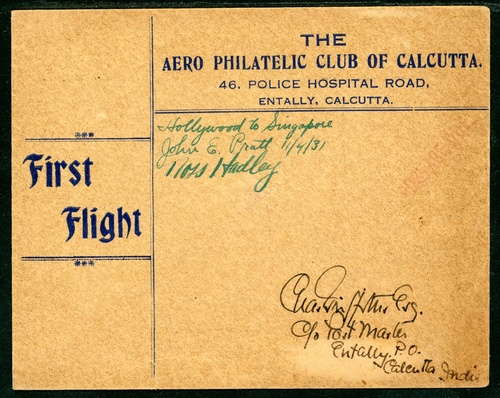 THE
AERO PHILATELIC CLUB OF CALCUTTA.
46, POLICE HOSPITAL ROAD,
ENTALLY, CALCUTTA.
Hollywood to Singapore
John E. Pratt 1/4/31
Hadley
First
Flight
Esq.
c/o Post Master
Entally. P.O.
Calcutta India